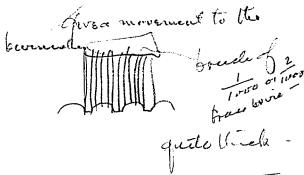 Gives movement to the
brush of
1/1000 or 2/1000
brass wire —
quite thick —